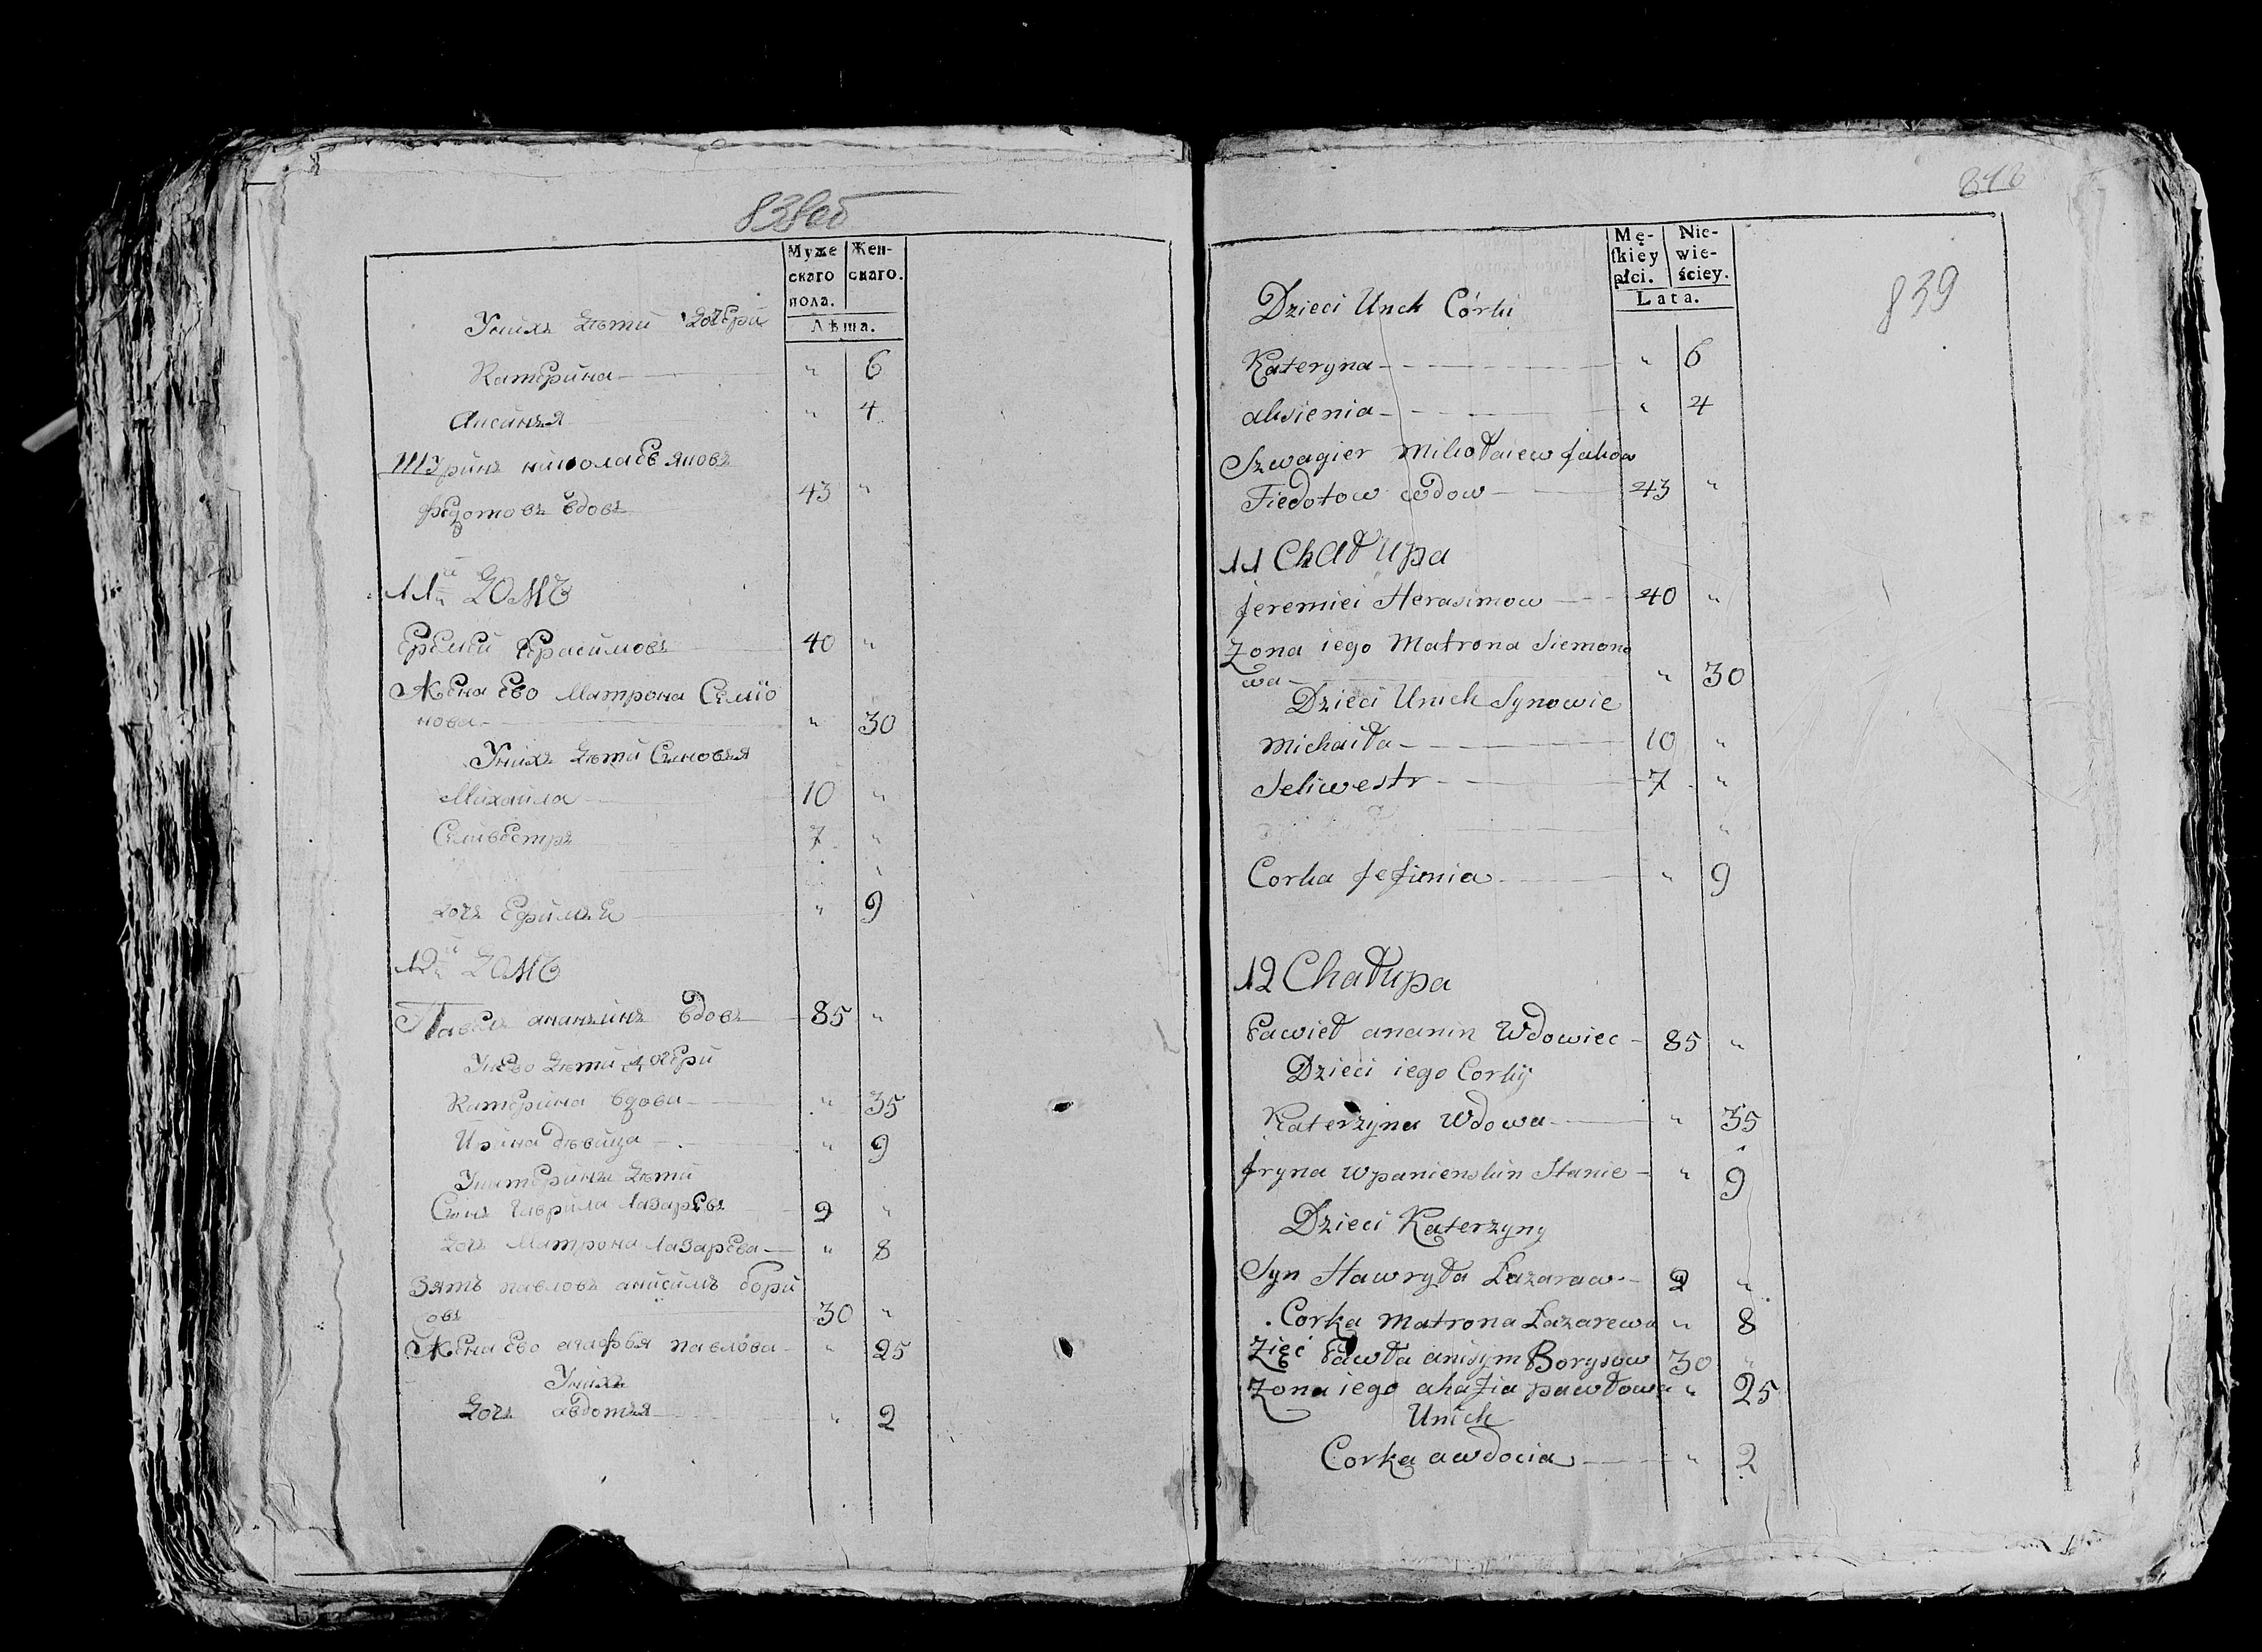 838об
Муже
скаго
пола.
Жен-
скаго.
Лѣта.
Унихъ дѣти дочери
Катерина " 6
Аксинья " 4
Шуринъ николаевъ яковъ
федотовъ вдовъ 43 "
11й домъ
Еремей Герасимовъ 40 "
Жена Ево Матрона Семіо
нова " 30
Унихъ дѣти Сыновья
Михаила 10 "
Селивестръ 7 "
дочь Ефимья " 9
12й домъ
Павелъ ананьинъ вдовъ 85 "
Унево дѣти дочери
Катерина вдова " 35
Ирина дѣвица " 9
Укатерины дѣти
Сынъ Гаврила Лазаревъ 9 "
дочь Матрона Лазарева " 8
Зять павловъ анисимъ бори
совъ 30 "
Жена Ево агафья павлова " 25
Унихъ
дочь авдотья " 2
839
Mę-
ſkiey
płci.
Nie-
wie-
ściey.
Lata.
Dzieci Unch Córki
Kateryna " 6
aksienia " 4
Szwagier Mikołaiew Jakow
Fiedotow wdow 43 "
11 Chałupa
Jeremiei Herasimow 40 "
Zona iego Matrona Siemono
wa " 30
Dzieci Unich Synowie
Michaiła 10 "
Seliwestr 7 "
"
Corka Jefimia " 9
12 Chałupa
Pawieł ananin Wdowiec 85 "
Dzieci iego Corkÿ
Katerzyna Wdowa " 35
Jryna wpanienskin Stanie " 9
Dzieci Katerzyny
Syn Hawryła Lazaraw 9 "
Corka Matrona Lazarewa " 8
Zięć Pawła anisym Borysow 30 "
Zona iego ahafia pawłowa " 25
Unich
Corka awdocia " 2